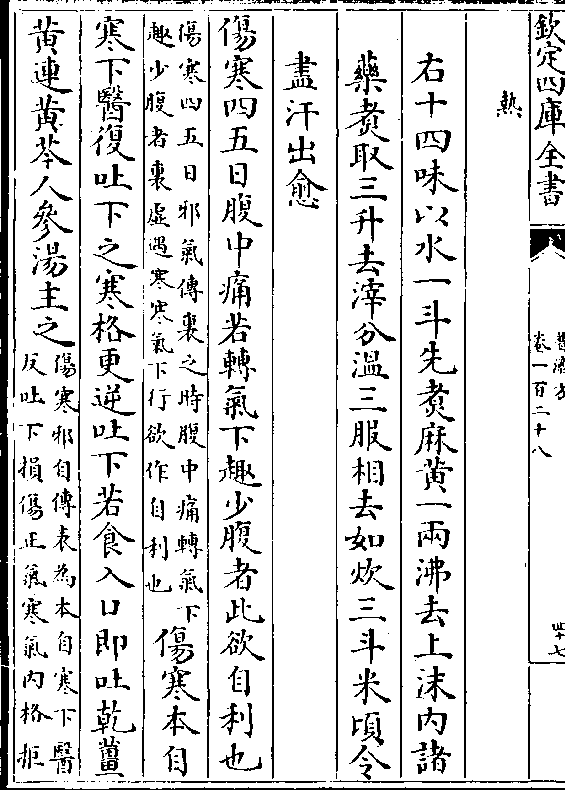 欽定四庫全書
普濟方
卷一百二十八
四十七
熱
右十四味以水一斗先煮麻黄一兩沸去上沫内諸
藥煮取三升去滓分温三服相去如炊三斗米頃令
盡汗出愈
傷寒四五日腹中痛若轉氣下趣少腹者此欲自利也
傷寒四五日邪氣傳裏之時腹中痛轉氣下
趣少腹者裏虚遇寒寒氣下行欲作自利也
傷寒本自
寒下醫復吐下之寒格更逆吐下若食入口即吐乾薑
黄連黄芩人參湯主之
傷寒邪自傳表為本自寒下醫
反吐下損傷正氣寒氣内格拒